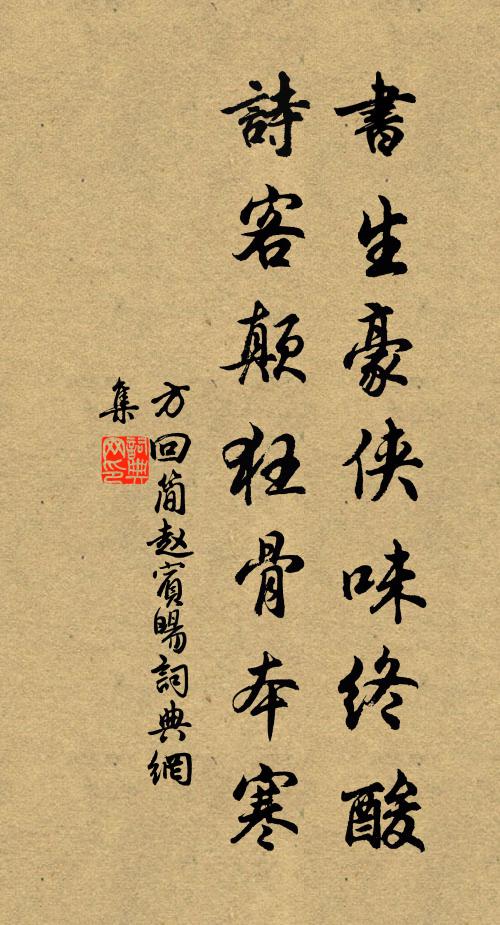 書生豪俠味終酸
詩客顛狂骨本寒
方回簡趙賓暘詞典網
集
詞典
网印